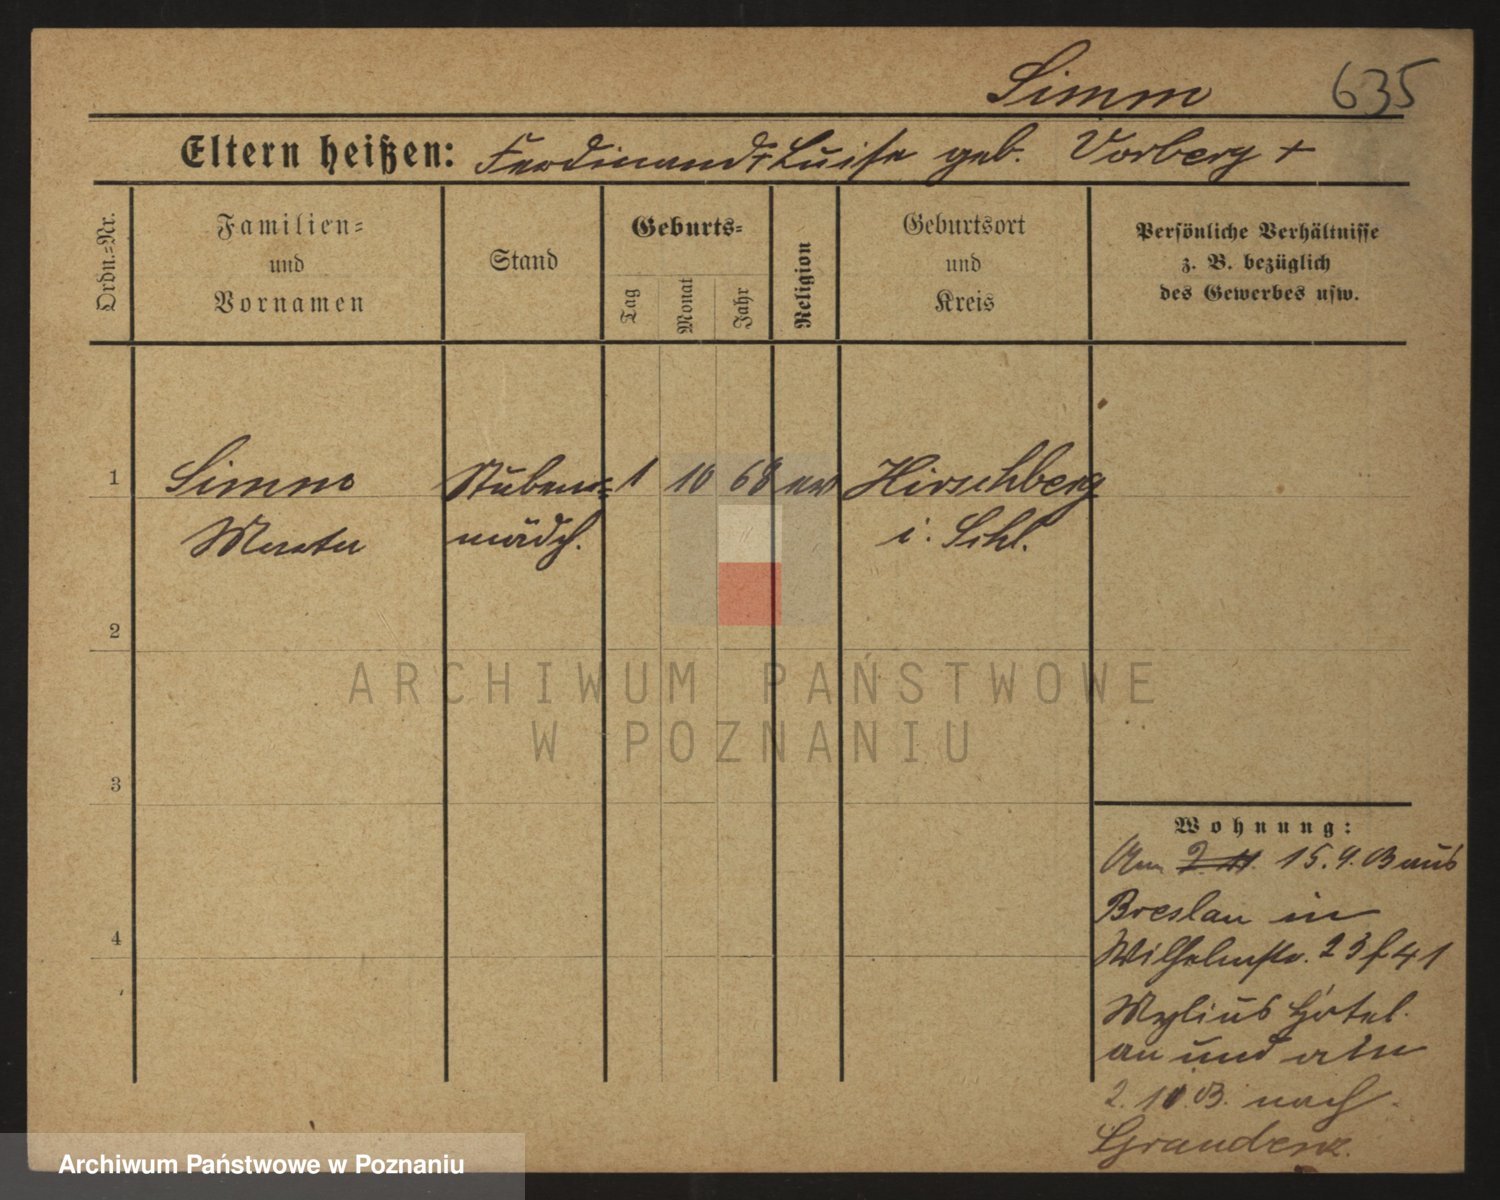 Simm 635
Eltern heißen: Ferdinand u. Luise geb. Vorberg +
Ordn.-Nr.
Familien-
und
Vornamen
Stand
Geburts-
Tag
Monat
Jahr
Religion
Geburtsort
und
Kreis
Persönliche Verhältnisse
z. B. bezüglich
des Gewerbes usw.
1 Simm Stuben- 1 10 68 ev Hirschberg
mädch. i. Schl.
2
3
4
Wohnung:
Am 15. 9. aus
Breslau in
Wilhelmstr. 23
Mylius Hotel
an und am
2. 10. nach
Graudenz.
ARCHIWUM PAŃSTWOWE
W POZNANIU
Archiwum Państwowe w Poznaniu